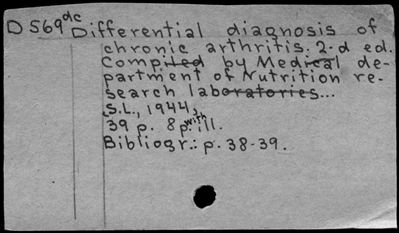 D 569dc Differential diagnosis of
chronic arthritis. 2-d ed.
Compiled by Medical de-
partment of Nutrition re-
search laboratories...
S.L., 1944,
39 p. 8 p. with ill.
Bibliogr.: p. 38-39.